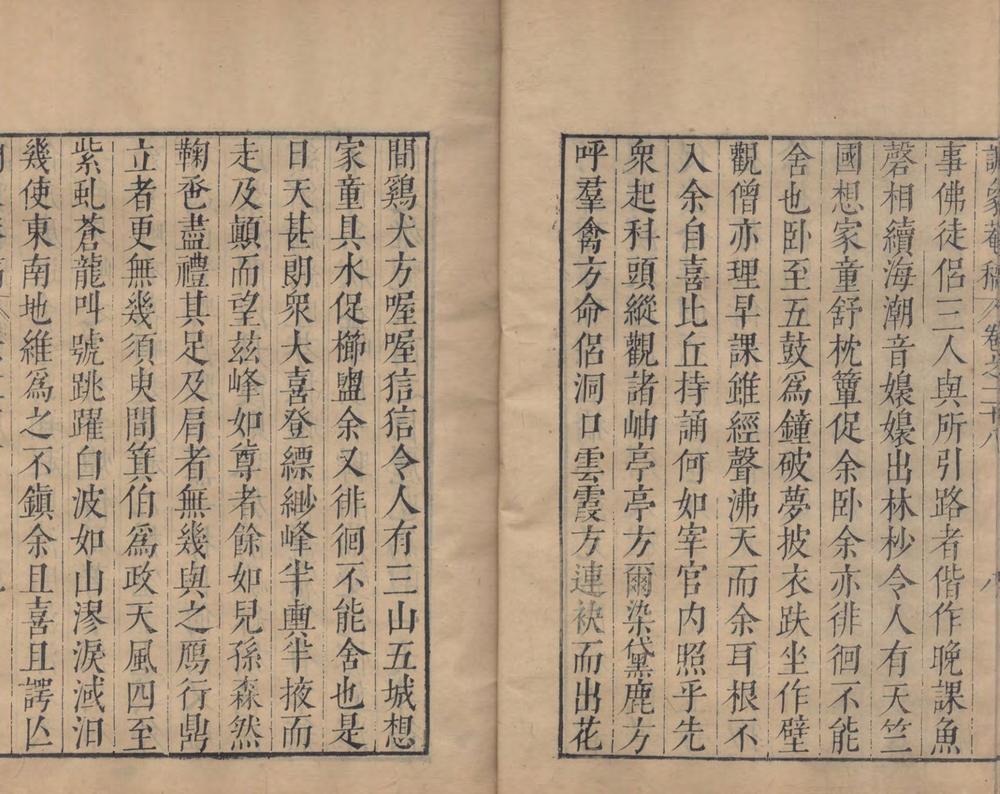 卷之二十八
事佛徒侶三人與所引路者偕作晚課魚
磬相續海潮音嬝嬝出林杪令人有天竺
國想家童舒枕簟促余卧余亦徘徊不能
舍也卧至五鼓爲鐘破夢披衣趺坐作壁
觀僧亦理早課雖經聲沸天而余耳根不
入余自喜比丘持誦何如宰官内照乎先
衆起科頭縱觀諸岫亭亭方爾染黛鹿方
呼羣禽方命侶洞口雲霞方連袂而出花
間鷄犬方喔喔狺狺令人有三山五城想
家童具水促櫛盥余又徘徊不能舍也是
日天甚朗衆大喜登縹緲峰半輿半掖而
走及顛而望茲峰如尊者餘如兒孫森然
鞠卺盡禮其足及肩者無幾與之鴈行鼎
立者更無幾須臾間箕伯爲政天風四至
紫虬蒼龍叫號跳躍白波如山漻淚淢汩
幾使東南地維爲之不鎮余且喜且諤亾